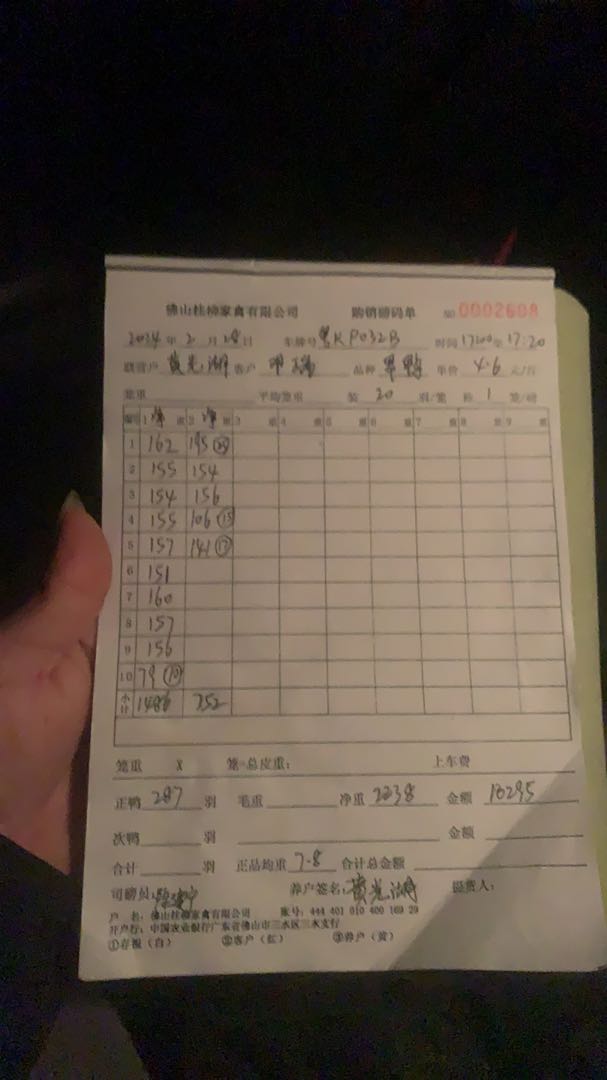 佛山桂柳家禽有限公司 购销磅码单 NO 0002608
2024 年 2 月 28 日 车牌号 粤KP032B 时间 17:00至17:20
黄光湖 客户 品种 单价 4.6 元/斤
笼重 平均笼重 装 20 羽/笼 称 1 笼/磅
编号 1 净 重 2 净 重 3 重 4 重 5 重 6 重 7 重 8 重 9 重
1 162 195 (25)
2 155 154
3 154 156
4 155 106 (15)
5 157 141 (17)
6 151
7 160
8 157
9 156
10 79 (10)
小计 1486 752
笼重 X 笼=总皮重: 上车费
正鸭 287 羽 毛重 净重 2238 金额 10295
次鸭 羽 金额
合计 羽 正品均重 7.8 合计总金额
司磅员: 养户签名: 黄光湖 提货人:
户 名: 佛山桂柳家禽有限公司 账号: 444 401 010 400 169 29
开户行: 中国农业银行广东省佛山市三水区三水支行
①存根(白) ②客户(红) ③养户(黄)